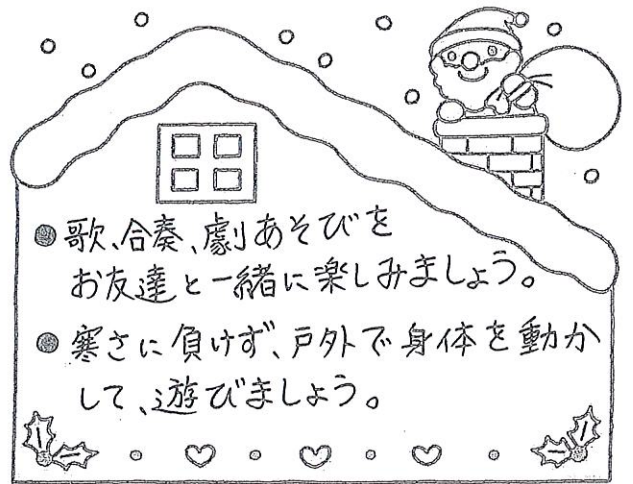 ●歌、合奏、劇あそびを
お友達と一緒に楽しみましょう。
●寒さに負けず、戸外で身体を動か
して、遊びましょう。